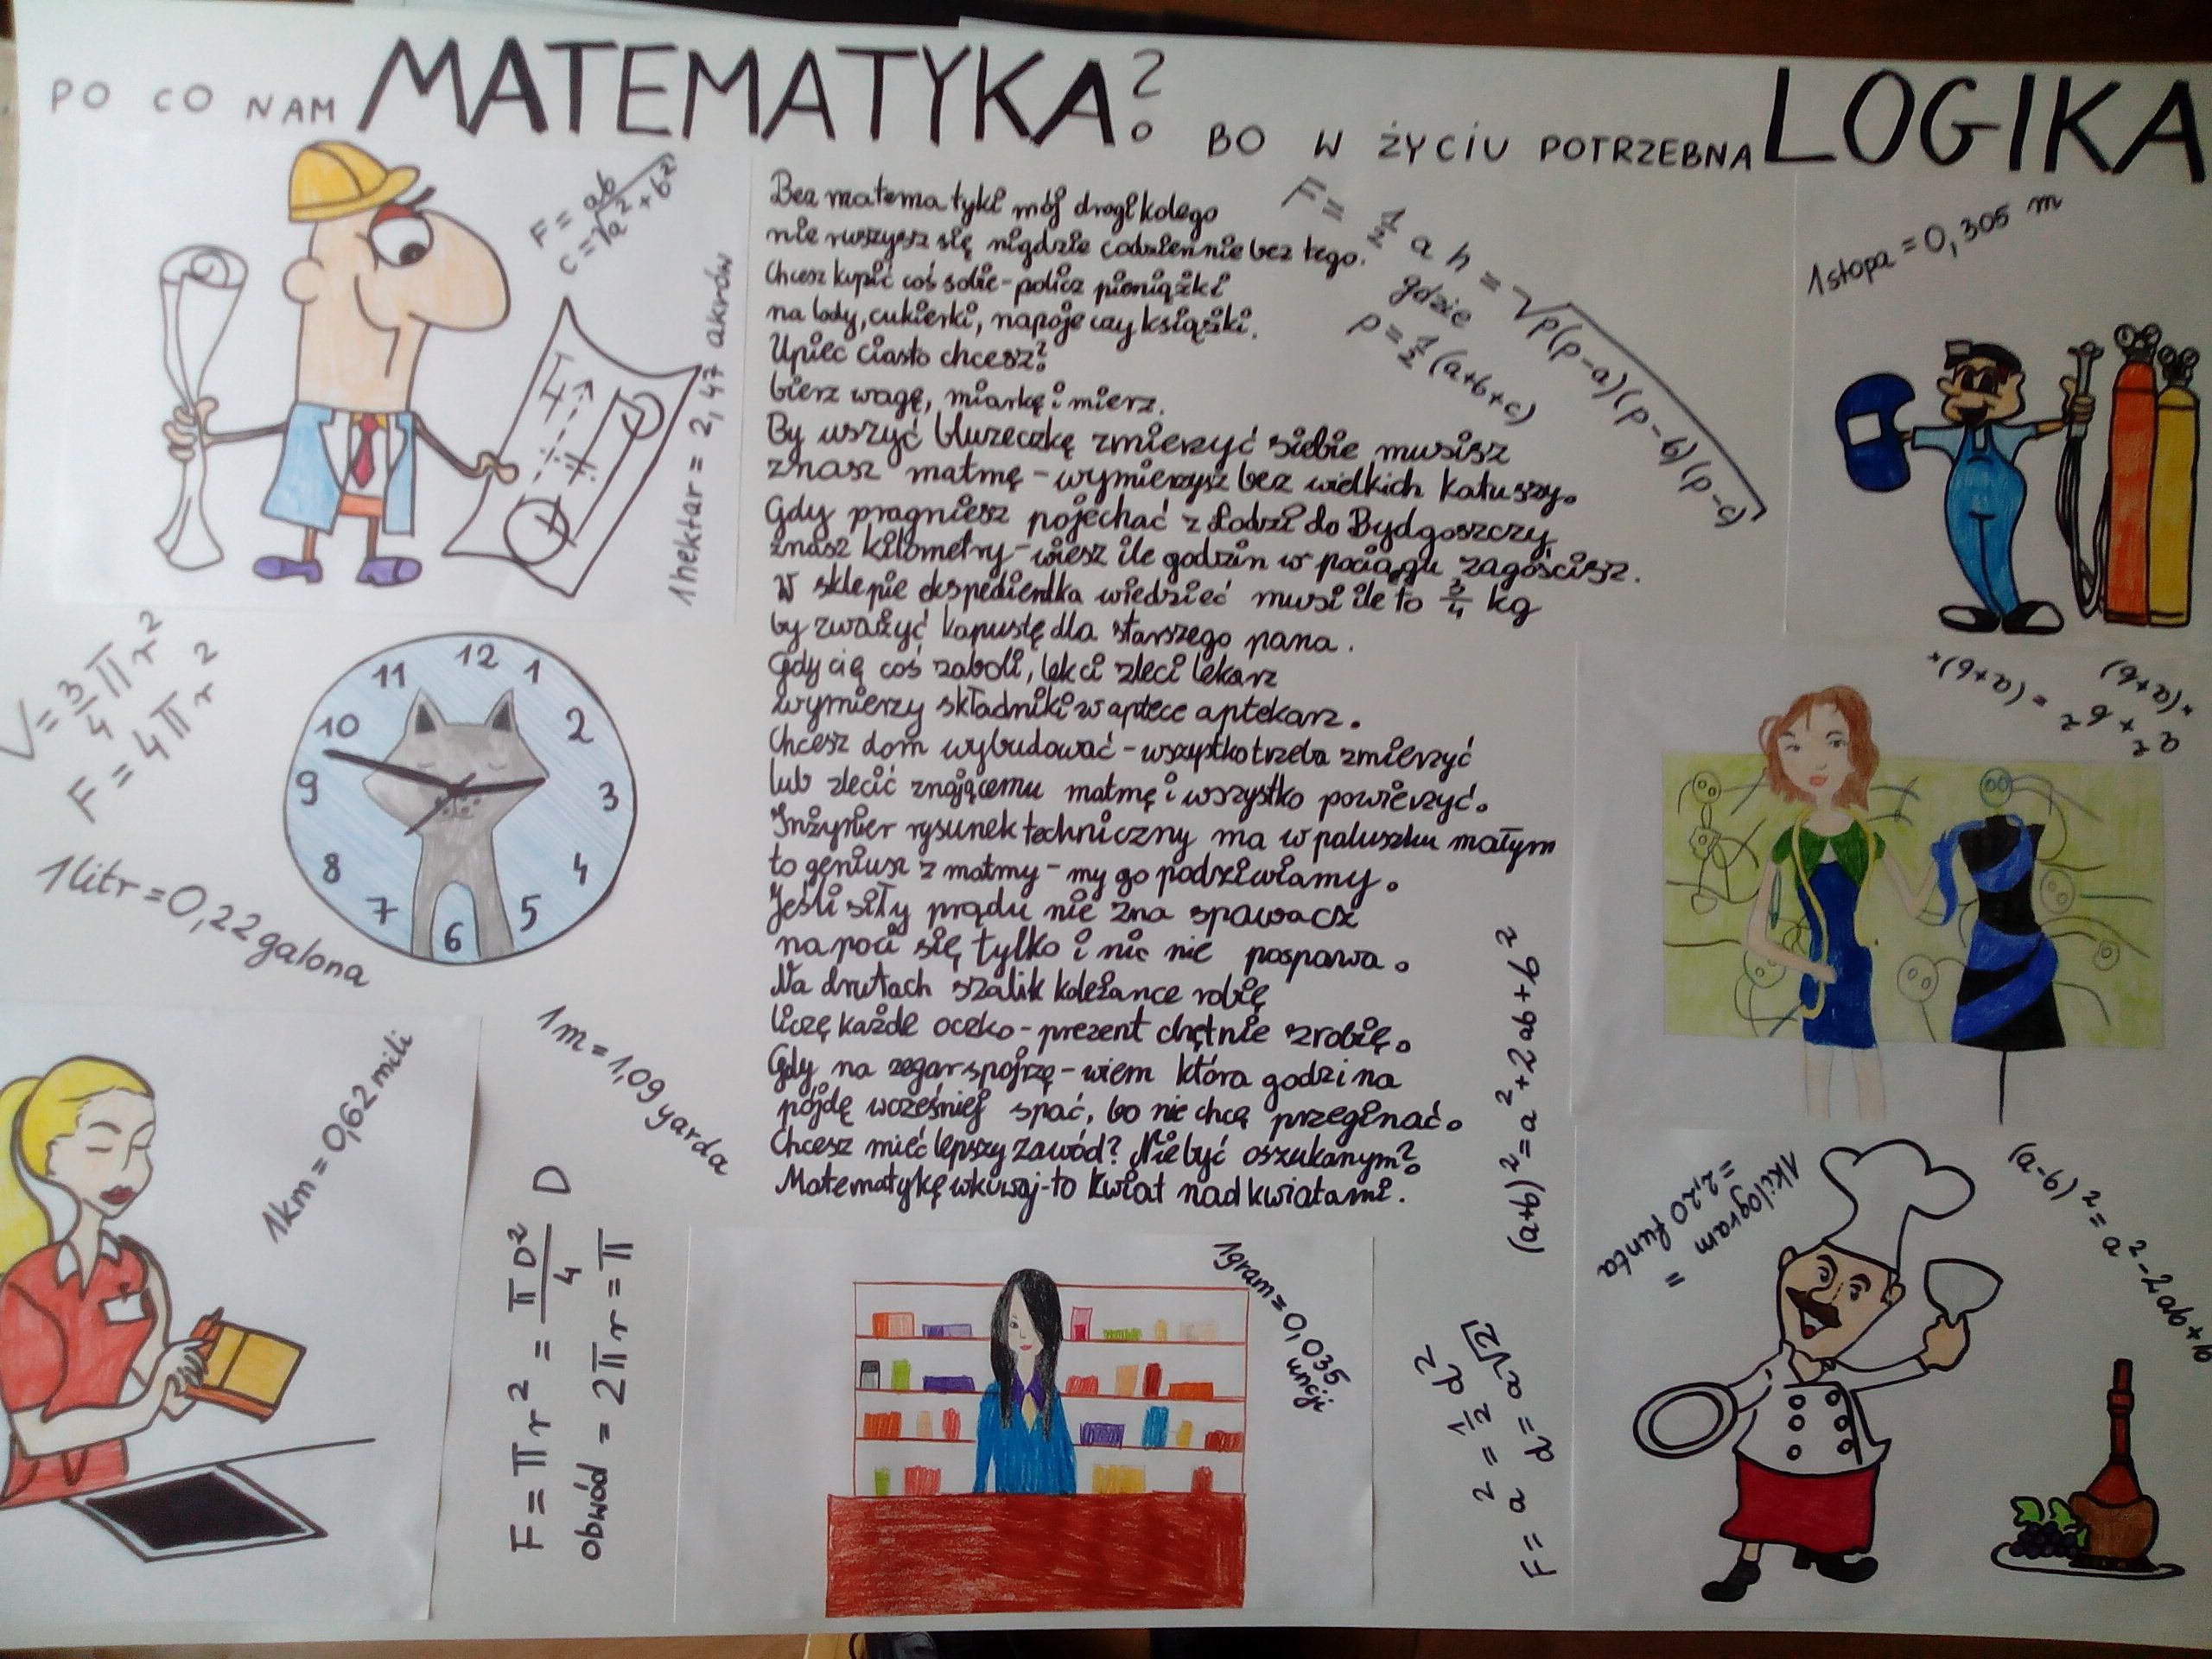 PO CO NAM MATEMATYKA? BO W ŻYCIU POTRZEBNA LOGIKA
F = ab
c = √a²+b²
1 hektar = 2,47 akrów
Bez matematyki mój drogi kolego
nie ruszysz się nigdzie codziennie bez tego.
Chcesz kupić coś sobie - policz pieniążki
na lody, cukierki, napoje czy książki.
Upiec ciasto chcesz?
bierz wagę, miarkę i mierz.
By uszyć bluzeczkę zmierzyć siebie musisz
znasz matmę - wymierzysz bez wielkich katuszy.
Gdy pragniesz pojechać z Łodzi do Bydgoszczy
znasz kilometry - wiesz ile godzin w pociągu zagościsz.
W sklepie ekspedientka wiedzieć musi ile to 3/4 kg
by zważyć kapustę dla starszego pana.
Gdy cię coś zaboli, leki zleci lekarz
wymierzy składniki w aptece aptekarz.
Chcesz dom wybudować - wszystko trzeba zmierzyć
lub zlecić znającemu matmę i wszystko powierzyć.
Inżynier rysunek techniczny ma w paluszku małym
to geniusz z matmy - my go podziwiamy.
Jeśli siły prądu nie zna spawacz
napoci się tylko i nic nie pospawa.
Na drutach szalik koleżance robię
liczę każde oczko - prezent chętnie zrobię.
Gdy na zegar spojrzę - wiem która godzina
pójdę wcześniej spać, bo nie chcę przeginać.
Chcesz mieć lepszy zawód? Nie być oszukanym?
Matematykę wkuwaj - to kwiat nad kwiatami.
F = 1/2 a h = √p(p-a)(p-b)(p-c)
gdzie
p = 1/2 (a+b+c)
1 stopa = 0,305 m
V = 3/4 π r²
F = 4 π r²
12
1
2
3
4
5
6
7
8
9
10
11
1 litr = 0,22 galona
a² + b² = (a+b)+
+(a+b)
1 km = 0,62 mili
1 m = 1,09 yarda
F = π r² = πD²/4
obwód = 2πr = π D
(a+b)² = a² + 2ab + b²
1 gram = 0,035
uncji
F = a² = 1/2 d²
d = a√2
1 kilogram =
= 2,20 funta
(a-b)² = a² - 2ab + b